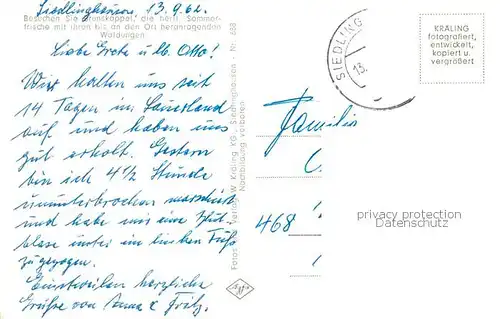 Siedlinghausen, 13.9.62.
Besuchen Sie Grönekappel, die herrl. Sommer-
frische mit ihren bis an den Ort heranragenden
Waldungen
Liebe Grete u. lb. Otto!
Wir halten uns seit
14 Tagen im Sauerland
auf und haben uns
gut erholt. Gestern
bin ich 4½ Stunde
ununterbrochen marschiert
und habe mir eine Blut
blase unter im linken Fuß
zugezogen.
Einstweilen herzliche
Grüße von Anna & Fritz.
Fotos und Verlag W. Kräling KG., Siedlinghausen - Nr. 688
Nachbildung verboten
SIEDLING
13.
KRALING
fotografiert,
entwickelt,
kopiert u.
vergrößert
Familie
C.
468
privacy protection
Datenschutz